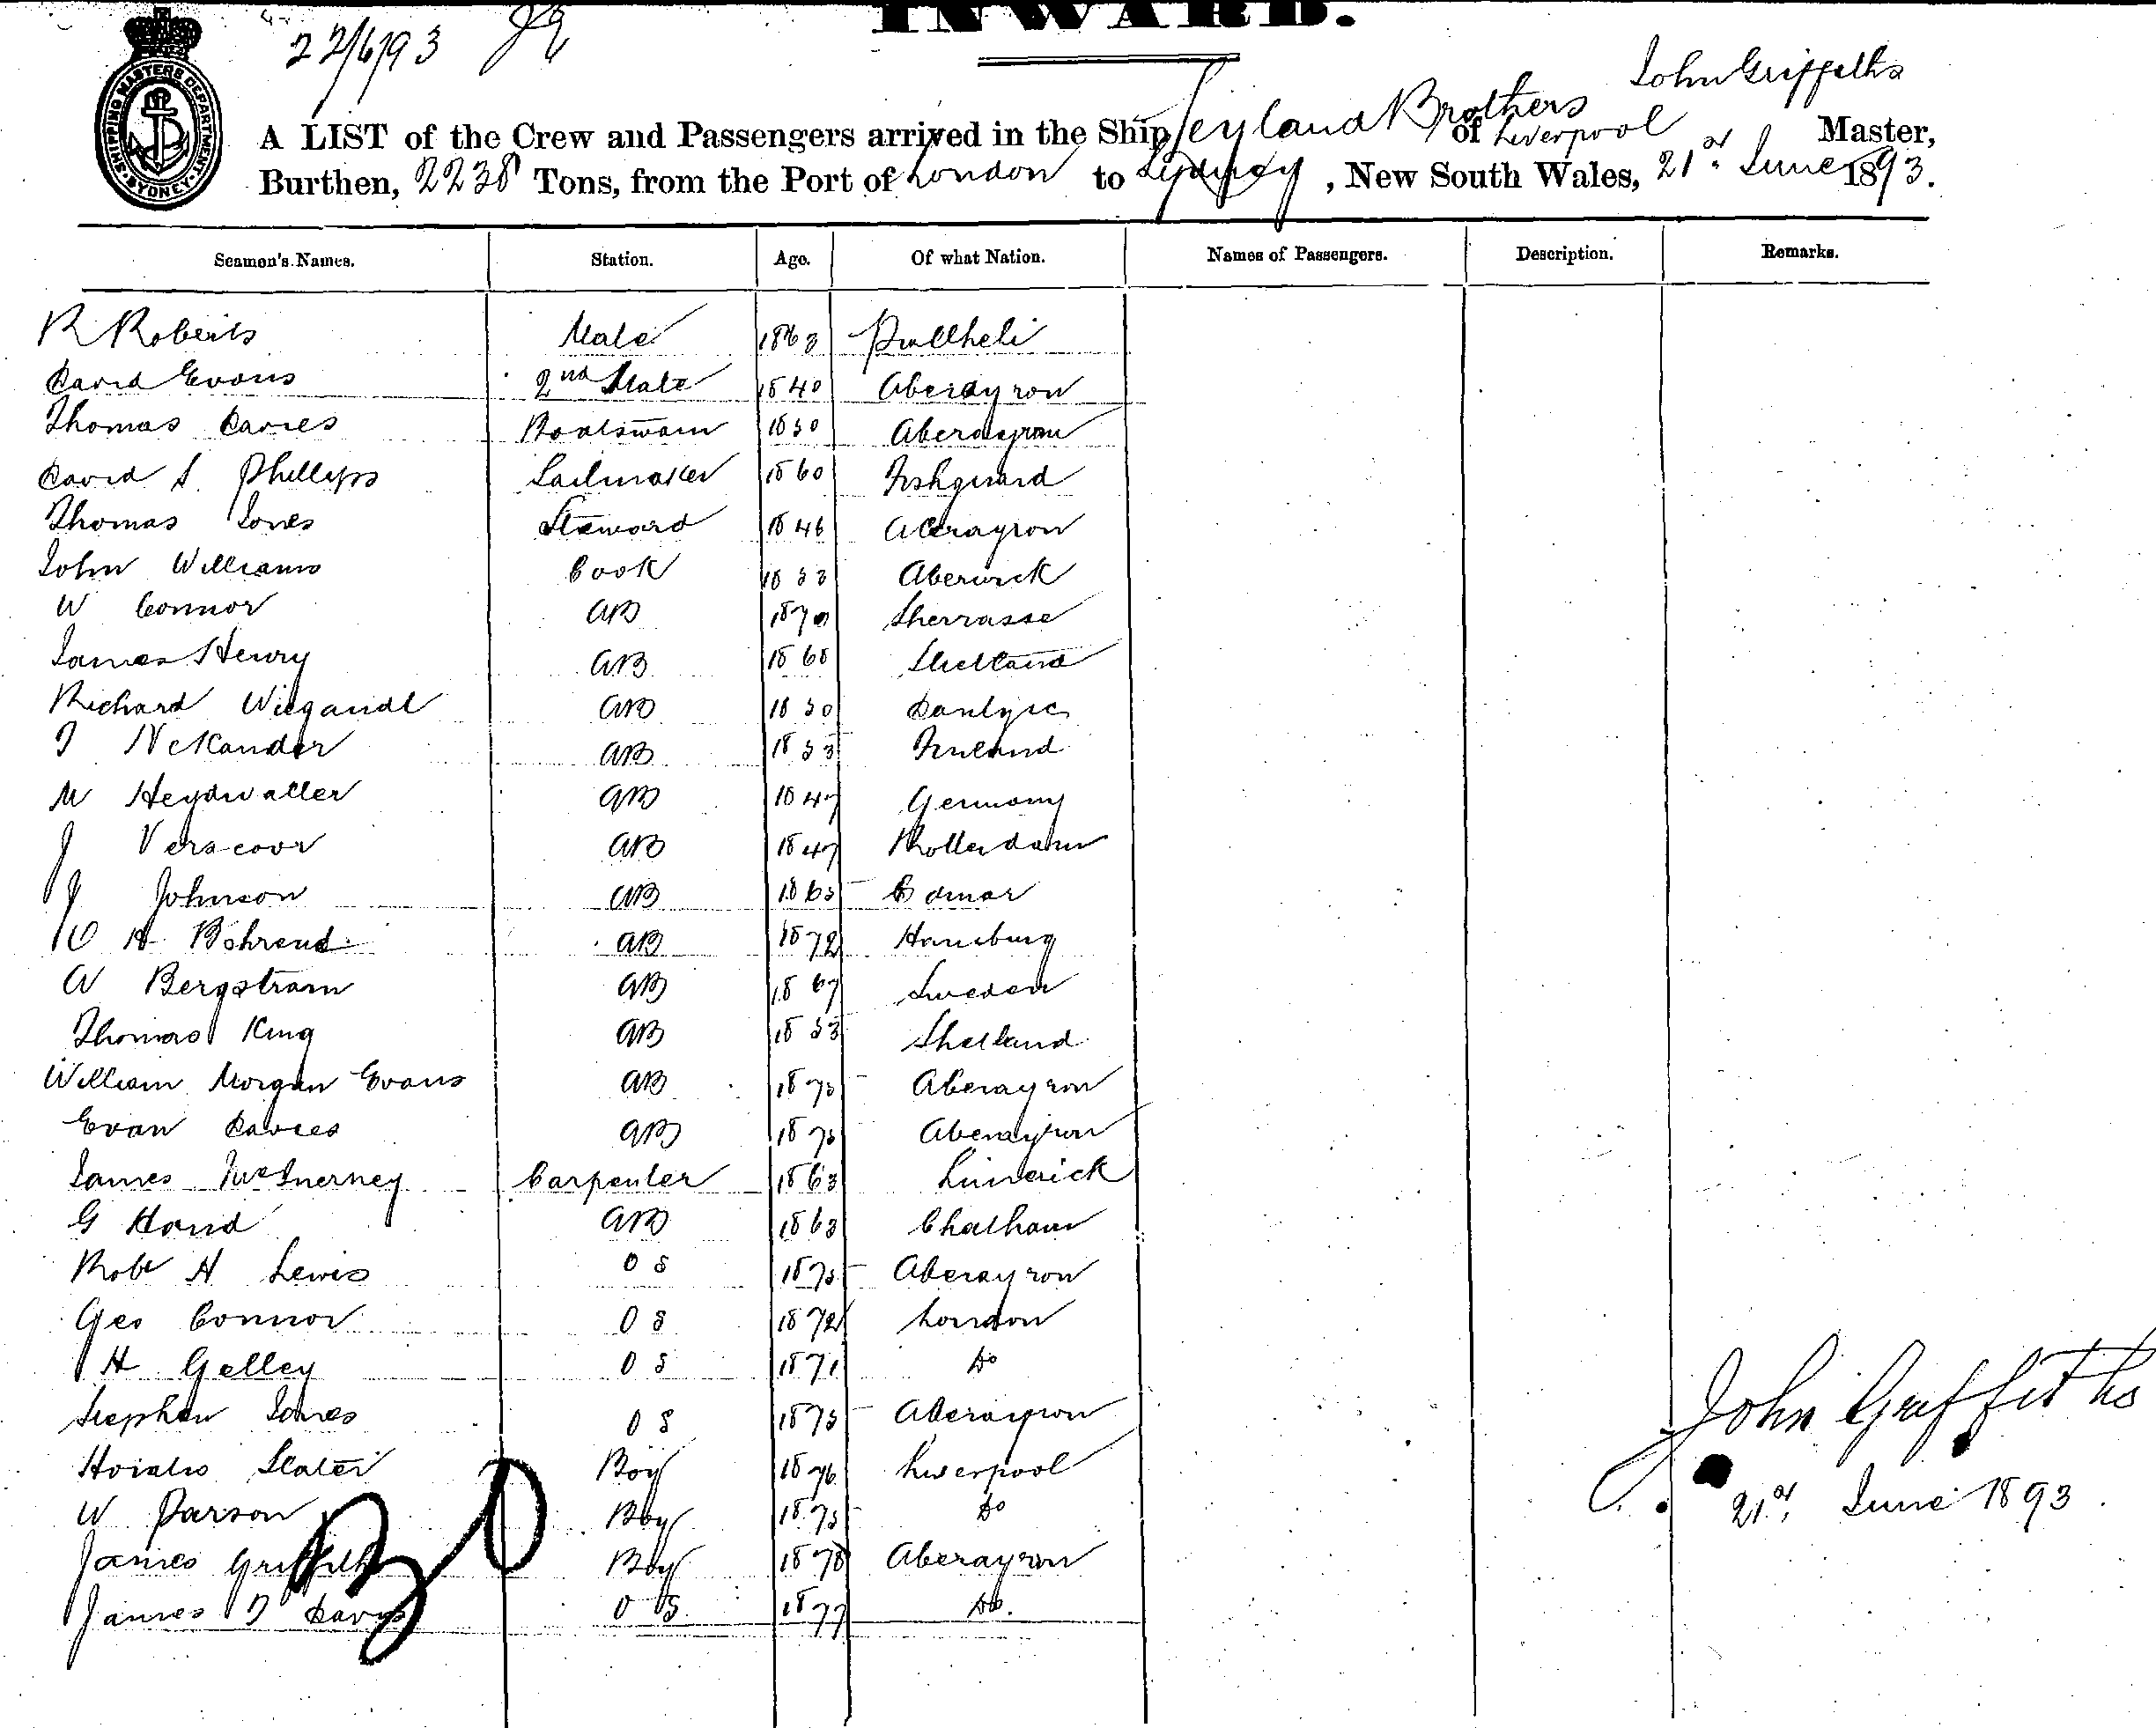 INWARD.
22/6/93
SHIPPING MASTERS DEPARTMENT SYDNEY
John Griffeths
A LIST of the Crew and Passengers arrived in the Ship Leyland Brothers of Liverpool Master,
Burthen, 2238 Tons, from the Port of London to Sydney, New South Wales, 21st June 1893.
Seamen's Names. Station. Age. Of what Nation. Names of Passengers. Description. Remarks.
R Roberts Mate 1863 Pwllheli
David Evans 2nd Mate 1840 Aberayron
Thomas Davies Boatswain 1850 Aberayron
David S. Phillips Sailmaker 1860 Fishguard
Thomas Jones Steward 1846 Aberayron
John Williams Cook 1853
W Connor AB 1870
James Henry AB 1868 Shetland
Richard Wiegandt AB 1850 Dantzic
J Nekander AB 1853 Finland
M Heydwaller AB 1847 Germany
J AB 1847 Rotterdam
J Johnson AB 1865
H Behrend AB 1872 Hamburg
A Bergstrom AB 1867 Sweden
Thomas King AB 1853 Shetland
William Morgan Evans AB 1875 Aberayron
Evan Davies AB 1875 Aberayron
James McInerney Carpenter 1863 Limerick
G Hand AB 1863 Chatham
Robt H Lewis O S 1875 Aberayron
Geo Connor O S 1872 London
H Gelley O S 1871 Do
Stephen Jones O S 1875 Aberayron
Horatio Slater Boy 1876 Liverpool
W Parson Boy 1875 Do
James Griffith Boy 1878 Aberayron
James D Davys O S 1877 Do.
John Griffiths
21st June 1893